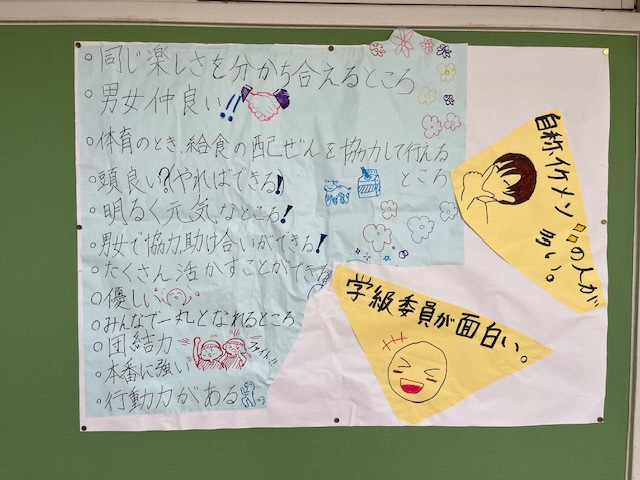 ○同じ楽しさを分かち合えるところ
○男女仲良い!!
○体育のとき、給食の配ぜんを協力して行える
ところ
○頭良い?(やればできる!
○明るく元気なところ!
○男女で協力助け合いができる!
○たくさん活かすことができる
○優しい
○みんなで一丸となれるところ
○団結力
ファイト!!
○本番に強い
○行動力がある
自称、イケメンの人が
多い。
学級委員が面白い。